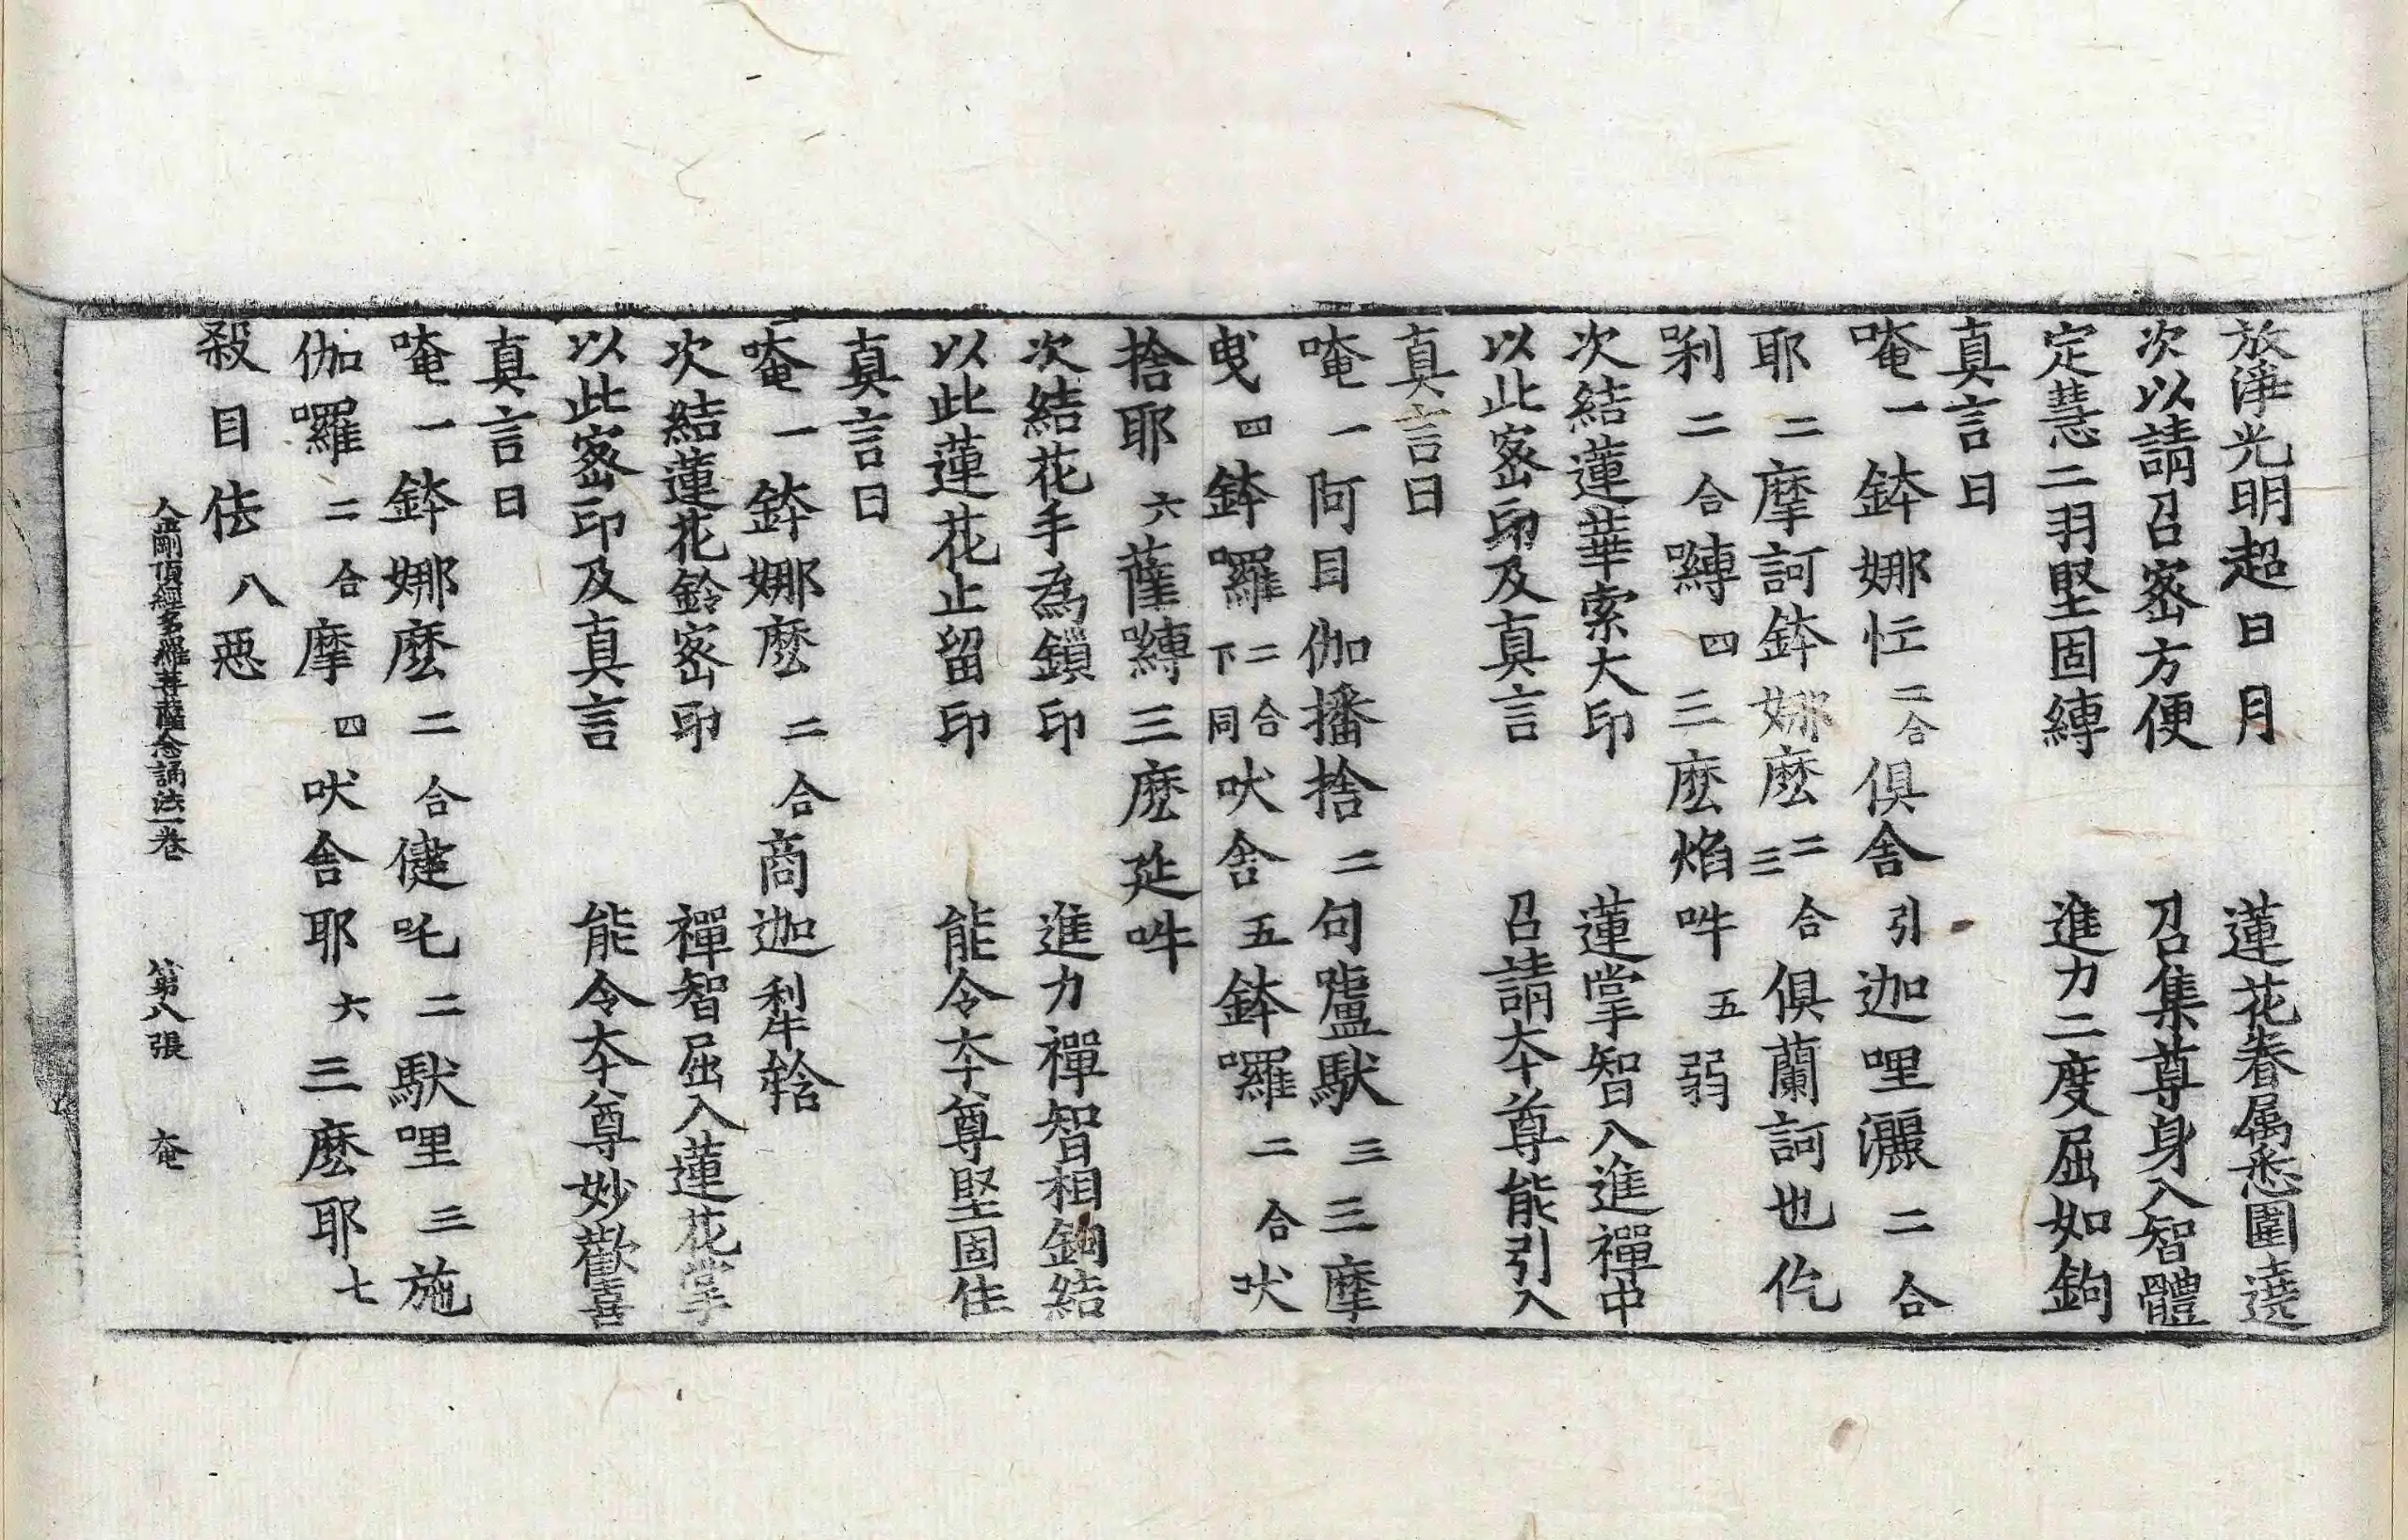 放淨光明超日月　蓮花眷属悉圍遶
次以請召密方便　召集尊身入智體
定慧二羽堅固縛　進力二度屈如鉤
真言曰
唵一鉢娜忙二合俱舍引迦哩灑二合
耶二摩訶鉢娜麽二合三俱蘭訶也仡
剎二合嚩四三麽焰吽五弱
次結蓮華索大印　蓮掌智入進禪中
以此密印及真言　召請本尊能引入
真言曰
唵一阿目伽播捨二句嚧馱三三摩
曳四鉢囉二合下同吠舍五鉢囉二合吠
捨耶六薩嚩三麽延吽
次結花手為鎖印　進力禪智相鉤結
以此蓮花止留印　能令夲尊堅固住
真言曰
唵一鉢娜麽二合商迦𤚥
次結蓮花鈴密印　禪智屈入蓮花掌
以此密印及真言　能令夲尊妙歡喜
真言曰
唵一鉢娜麽二合健吒二馱哩三施
伽囉二合摩四吠舍耶六三麽耶七
殺目佉八惡
金剛頂經多羅菩薩念誦法一卷　第八張　奄